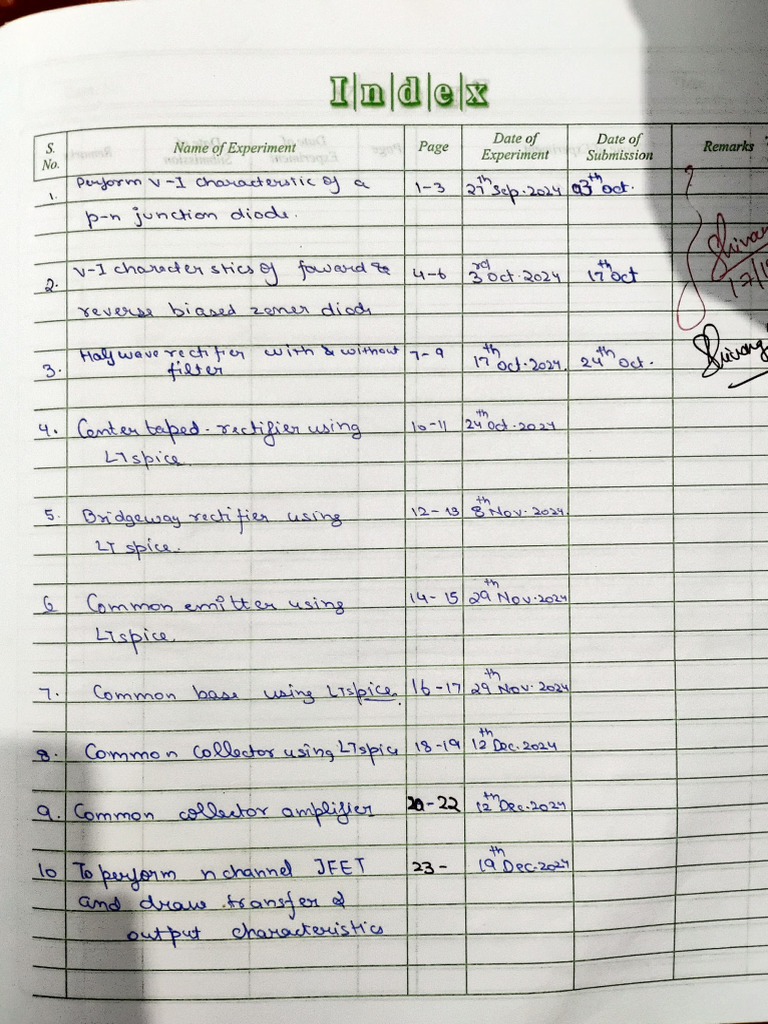 Index
S. No. Name of Experiment Page Date of Experiment Date of Submission Remarks
1. Perform V-I characterstic of a 1-3 27th Sep. 2024 03th Oct.
p-n junction diode.
2. V-I character stics of foward & 4-6 3rd Oct. 2024 17th Oct
reverse biased zener diode
3. Half wave rectifier with & without 7-9 17th Oct. 2024. 24th Oct.
filter
4. Center taped. rectifier using 10-11 24th Oct. 2024
LTspice.
5. Bridgeway rectifier using 12-13 8th Nov. 2024.
LT spice.
6 Common emitter using 14-15 29th Nov. 2024
LTspice.
7. Common base using LTspice. 16-17 29th Nov. 2024
8. Common collector using LTspice 18-19 12th Dec. 2024
9. Common collector amplifier 20-22 12th Dec. 2024
10 To perform n channel JFET 23- 19th Dec. 2024
and draw transfer &
output characteristics